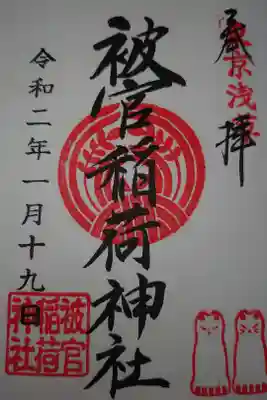 奉拝
東京浅草
被官稲荷神社
令和二年一月十九日
被官
稲荷
神社